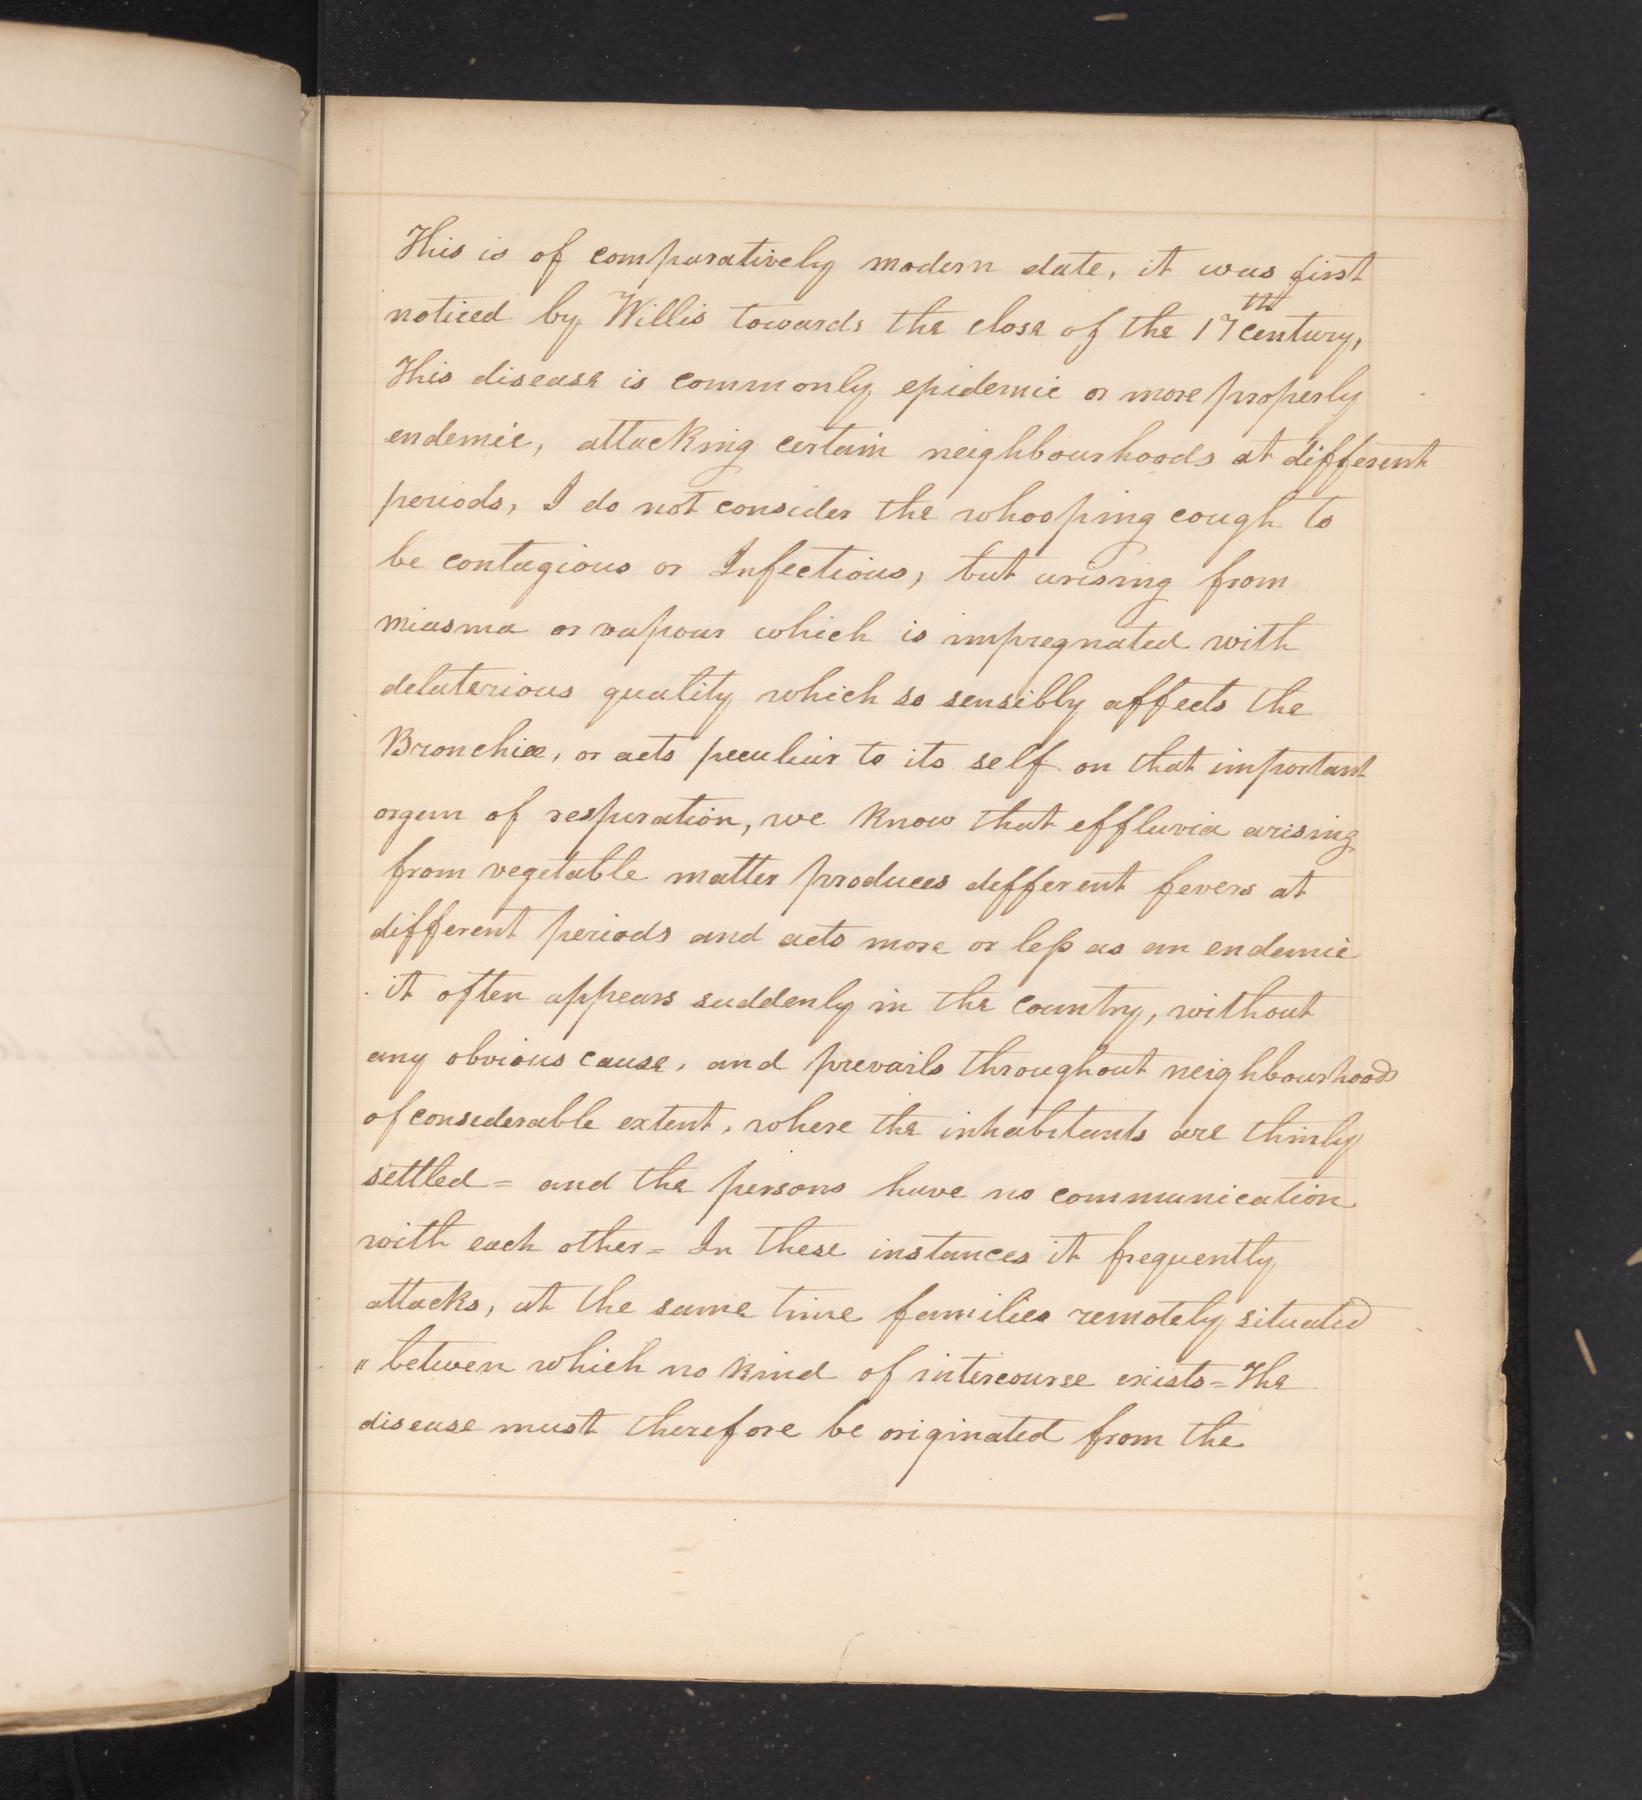 This is of comparatively modern date, it was first
noticed by Willis towards the close of the 17th century,
This disease is commonly epidemic or more properly
endemic, attacking certain neighbourhoods at different
periods, I do not consider the whooping cough to
be contagious or Infectious, but arising from
miasma or vapour which is impregnated with
delaterious quality which so sensibly affects the
Bronchiæ, or acts peculiar to its self on that important
organ of respiration, we know that effluvia arising
from vegetable matter produces different fevers at
different periods and acts more or less as an endemic
it often appears suddenly in the country, without
any obvious cause, and prevails throughout neighbourhoods
of considerable extent, where the inhabitants are thinly
settled = and the persons have no communication
with each other = In these instances it frequently
attacks, at the same time families remotely situated
" between which no kind of intercourse exists = The
disease must therefore be originated from the